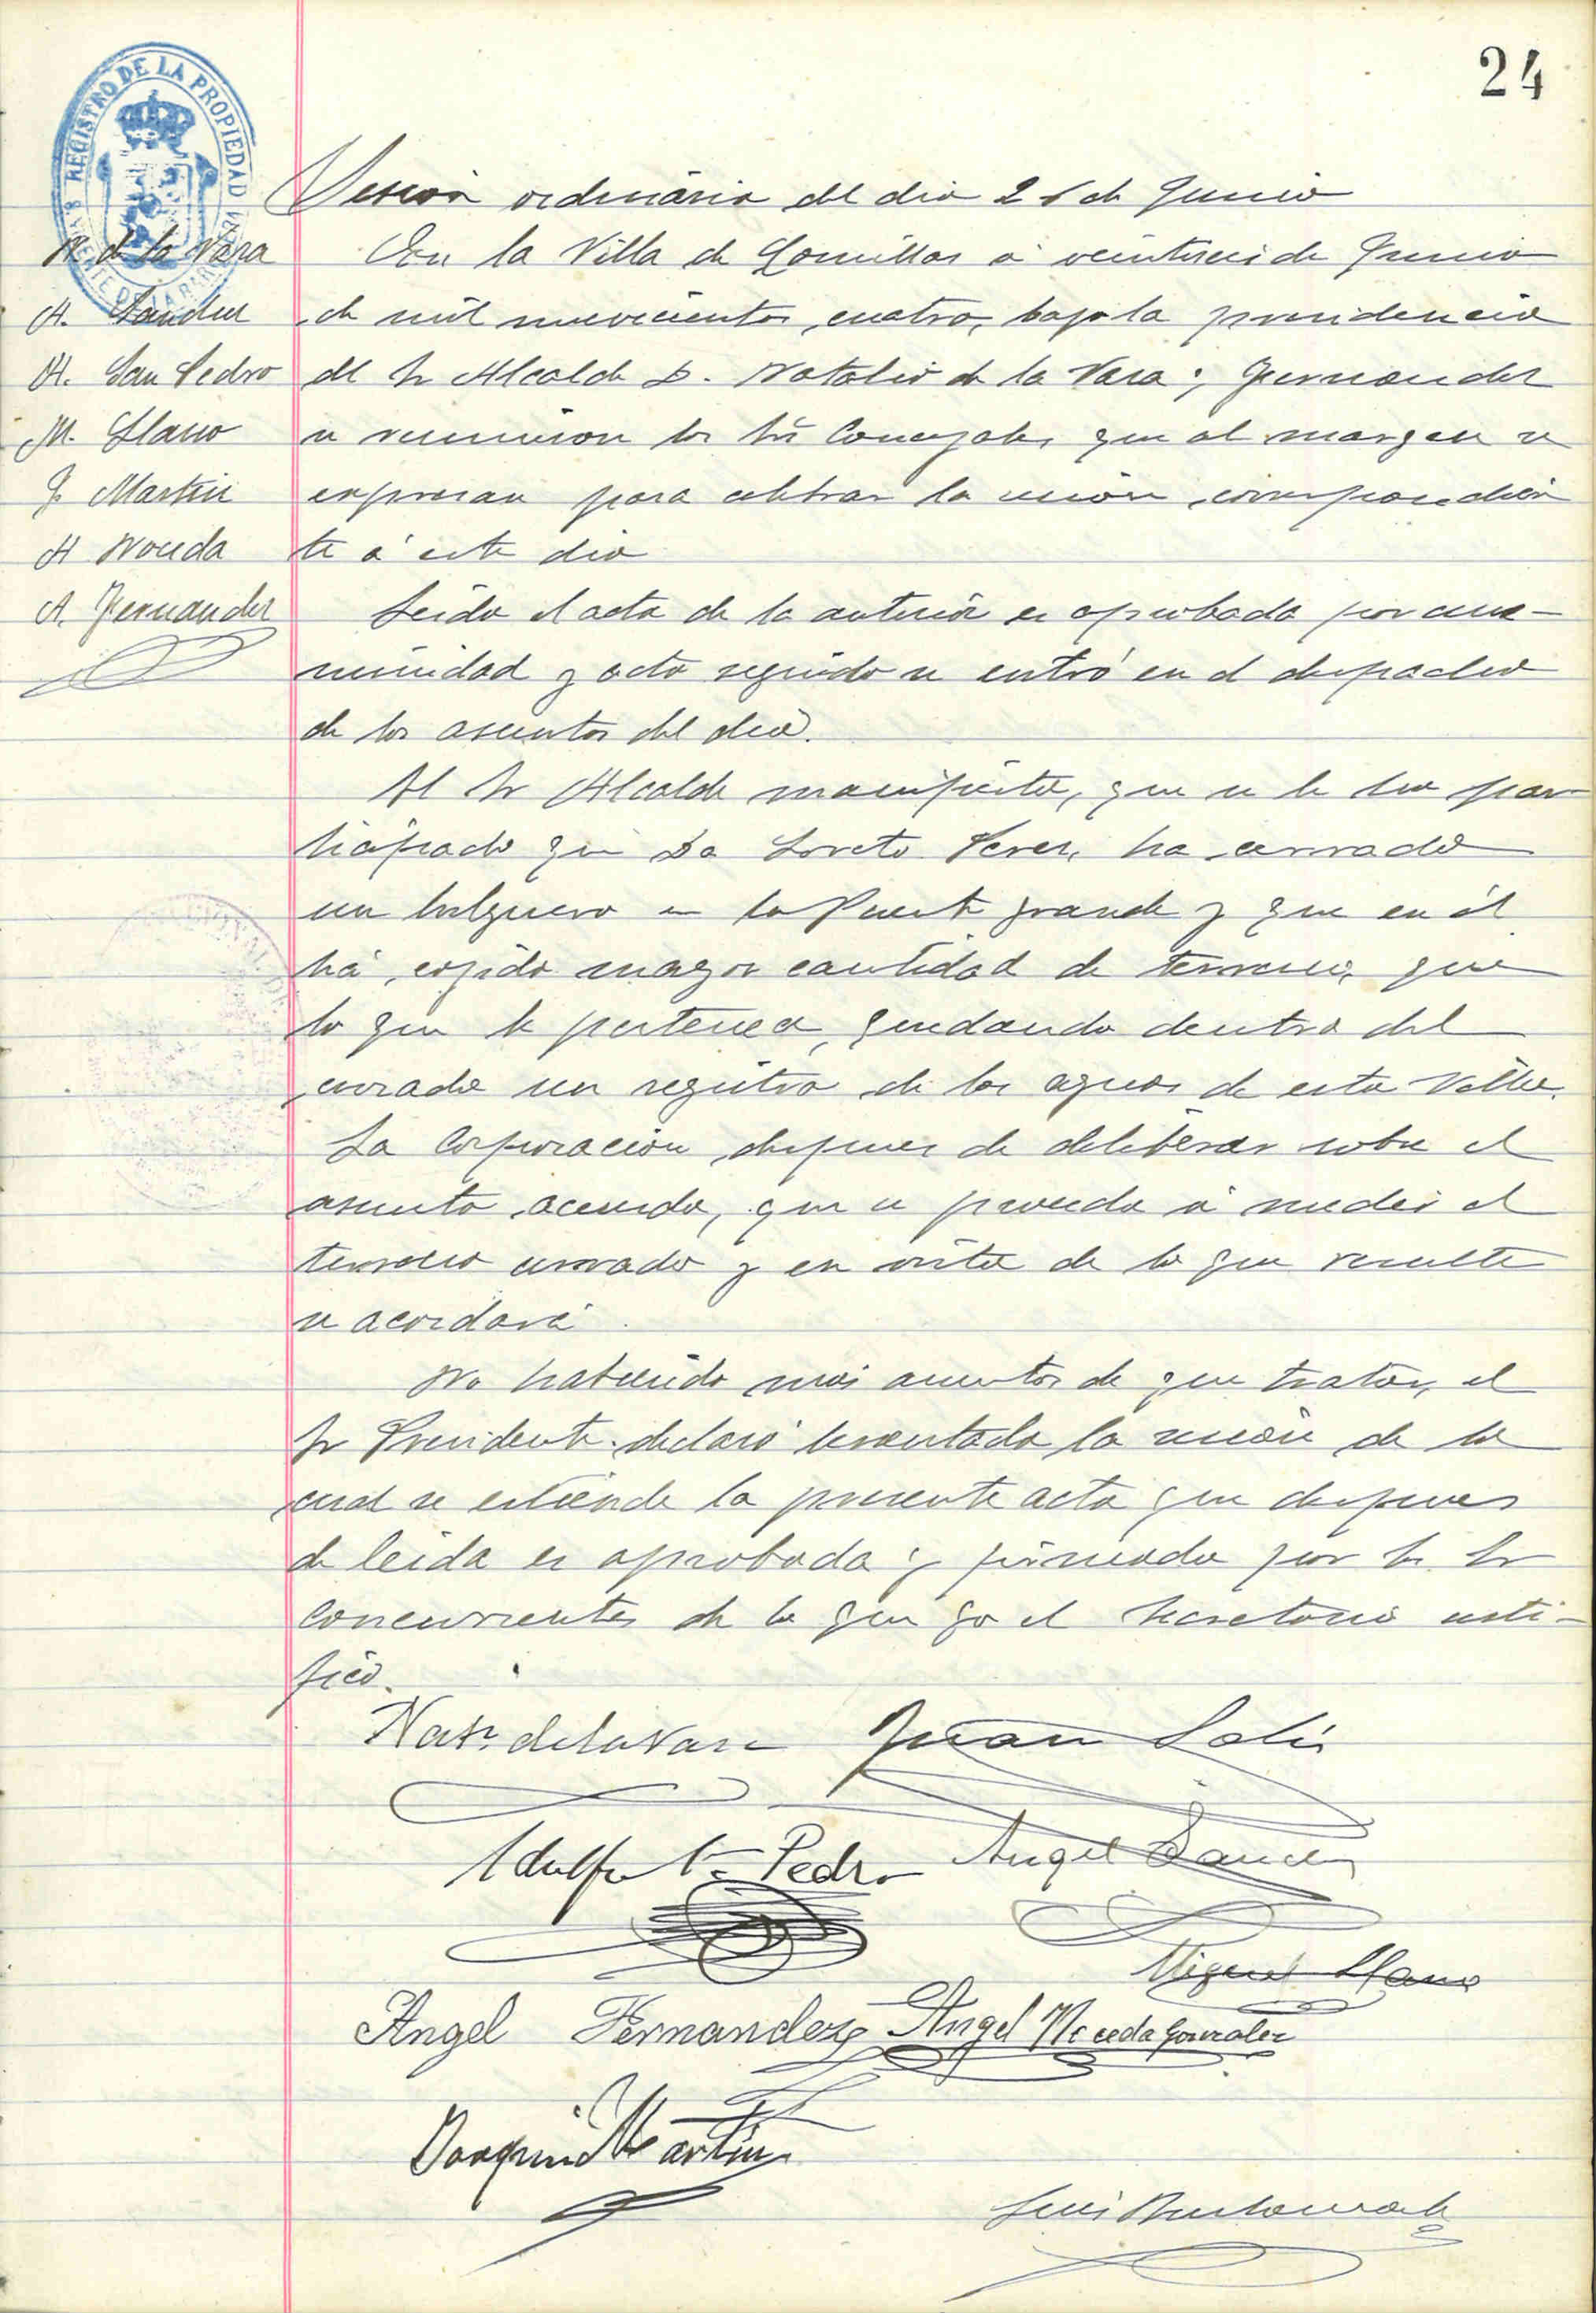 24
REGISTRO DE LA PROPIEDAD
Sesion ordinaria del dia 26 de Junio
N. de la Vara
En la Villa de Comillas á veintiseis de Junio
A. Sanchez
de mil novecientos cuatro, bajo la presidencia
A. San Pedro
del Sr Alcalde D. Natalio de la Vara y Fernandez
M. Llano
se reunieron los Srs Concejales que al margen se
J. Martin
expresan para celebrar la sesion correspondien
A Noceda
te á este dia
A. Fernandez
Leida el acta de la anterior es aprobada por una-
nimidad y acto seguido se entró en el despacho
de los asuntos del dia.
El Sr Alcalde manifiesta, que se le ha par
ticipado que Da Loreto Perez, ha cerrado
un helguero en la Fuente grande y que en él
há cogido mayor cantidad de terreno, que
lo que le pertenece, quedando dentro del
cerrado un registro de las aguas de esta Villa.
La Corporacion despues de deliberar sobre el
asunto acuerda, que se proceda á medir el
terreno cerrado y en vista de lo que resulte
se acordará.
No habiendo mas asuntos de que tratar, el
Sr Presidente declaró levantada la sesion de la
cual se extiende la presente acta que despues
de leida es aprobada y firmada por los Srs
concurrentes de lo que yo el Secretario certi-
fico.
Nat.o de la Vara Juan Solis
Adolfo Sn Pedro Angel Sanchez
Miguel Llano
Angel Fernandez Angel Noceda Gonzalez
Joaquin Martin
Luis Bustamante